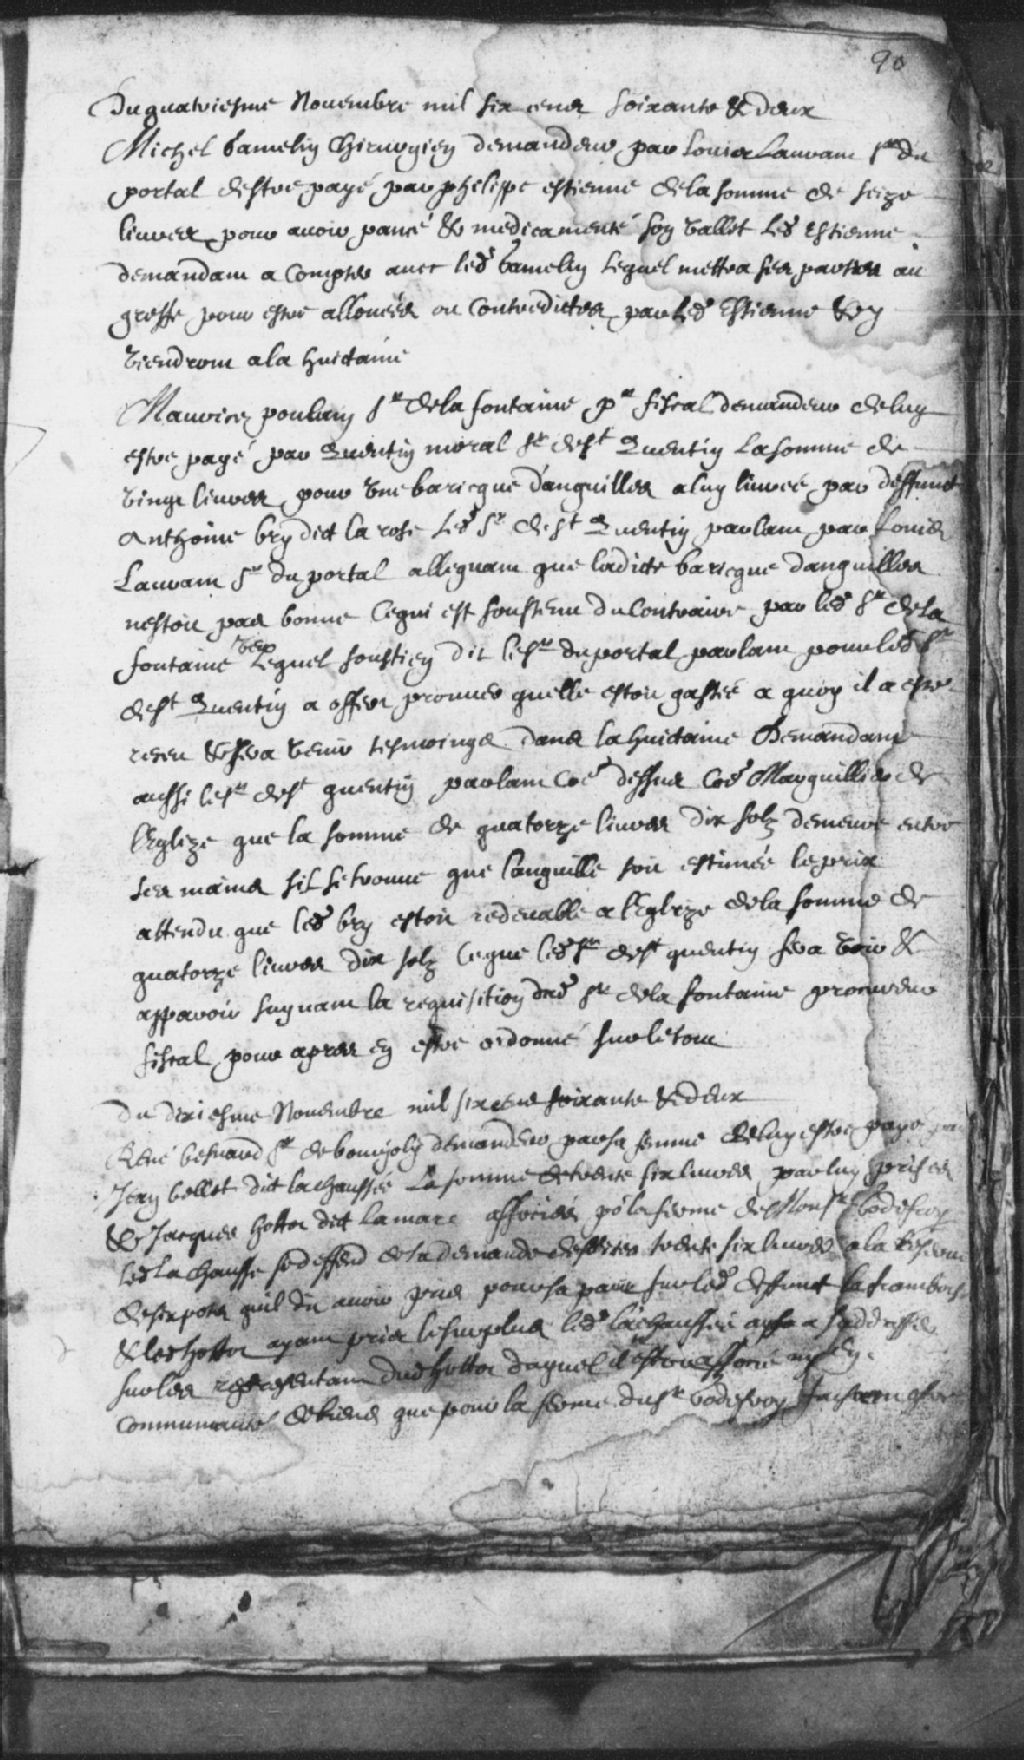 90
Du quatriesme Novembre mil six cens soixante & deux
Michel Gamelin Chirurgien demandeur par Louis Laurans Sr du
portal destre payé par philippe estienne de la somme de seize
livres pour avoir pansé & medicamenté son vallet led Estienne
demandant a Compter avec led Gamelin Lequel mettra ses parties au
greffe pour estre allouées ou Contredictes par led Estienne & y
viendront a la huictaine
Maurice poulain Sr de la fontaine pr fiscal demandeur de luy
estre payé par Quentin moral Sr de St Quentin La somme de
vingt livres pour une baricque danguilles a luy livrée par deffunct
Anthoine bry dict la rose Led Sr de St Quentin parlant par Louis
Laurans Sr du portal alleguant que ladicte baricque danguilles
nestoit pas bonne Cequi est soustenu du Contraire par led Sr de la
fontaine Lequel soustien dit le Sr du portal parlant pour led Sr
de St Quentin a offert prouver quelle estoit gastée a quoy il a esté
receu & fera venir tesmoings dans la huictaine Demandant
aussi le Sr de St quentin parlant Coe dessus Coe Marguillier de
lEglize que la somme de quatorze livres dix solz demeure entre
ses mains sil se trouve que languille soit estimée le prix
attendu que led bry estoit redevable a lEglize de la somme de
quatorze livres dix solz Ceque led Sr de St quentin fera voir &
apparoir suyvant la requisition dud Sr de la fontaine procureur
fiscal pour apres en estre ordonné sur le tout
du dixiesme Novembre mil six cens soixante & deux
René besnard Sr de bourjoly demandeur par sa femme de luy estre payé par
Jean bellet dit la chaussée La somme de trente six livres par luy prises
& Jacques hottot dit Lamare associés po la ferme de Monsr Godefroy
led la chausse se deffend de la demande desdites trente six livres a la reserve
de six pots quil dit avoir pris pour sa part sur led deffunct la framboise
& led hottot ayant pris le surplus led la chaussée a sadresser
sur les representans dud hottot duquel il estoit associé ny en
Communauté de biens que pour la ferme du Sr Godefroy